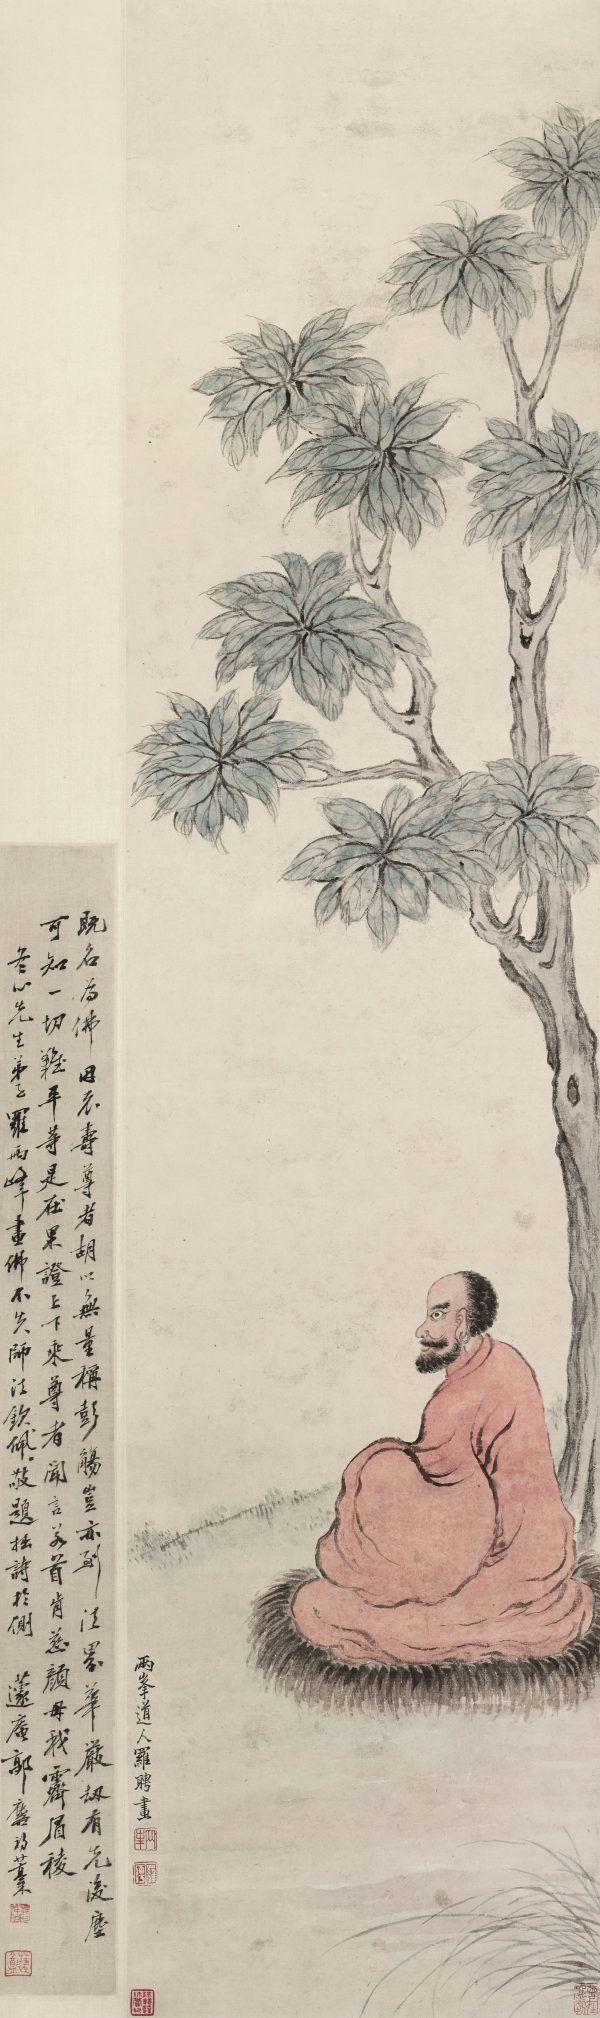 兩峯道人羅聘畫
既名為佛因衣壽尊者胡以無量稱彭觴豈亦到法界華嚴劫有先後塵
可知一切難平等是在果證上下乘尊者聞言為首肯慈顏毋我霽眉稜
冬心先生弟子羅兩峰畫佛不失師法欽佩敬題拙詩於側
蘧庵郭